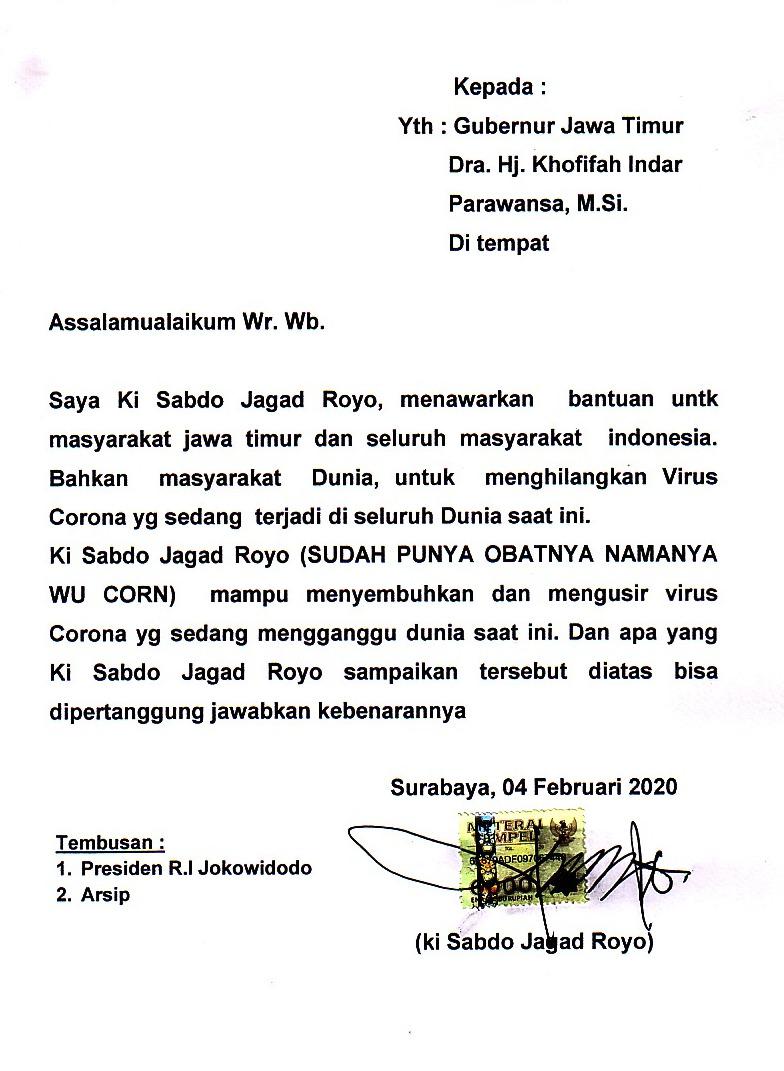 Kepada :
Yth : Gubernur Jawa Timur
Dra. Hj. Khofifah Indar
Parawansa, M.Si.
Di tempat
Assalamualaikum Wr. Wb.
Saya Ki Sabdo Jagad Royo, menawarkan bantuan untk
masyarakat jawa timur dan seluruh masyarakat indonesia.
Bahkan masyarakat Dunia, untuk menghilangkan Virus
Corona yg sedang terjadi di seluruh Dunia saat ini.
Ki Sabdo Jagad Royo (SUDAH PUNYA OBATNYA NAMANYA
WU CORN) mampu menyembuhkan dan mengusir virus
Corona yg sedang mengganggu dunia saat ini. Dan apa yang
Ki Sabdo Jagad Royo sampaikan tersebut diatas bisa
dipertanggung jawabkan kebenarannya
Surabaya, 04 Februari 2020
Tembusan :
1. Presiden R.I Jokowidodo
2. Arsip
(ki Sabdo Jagad Royo)